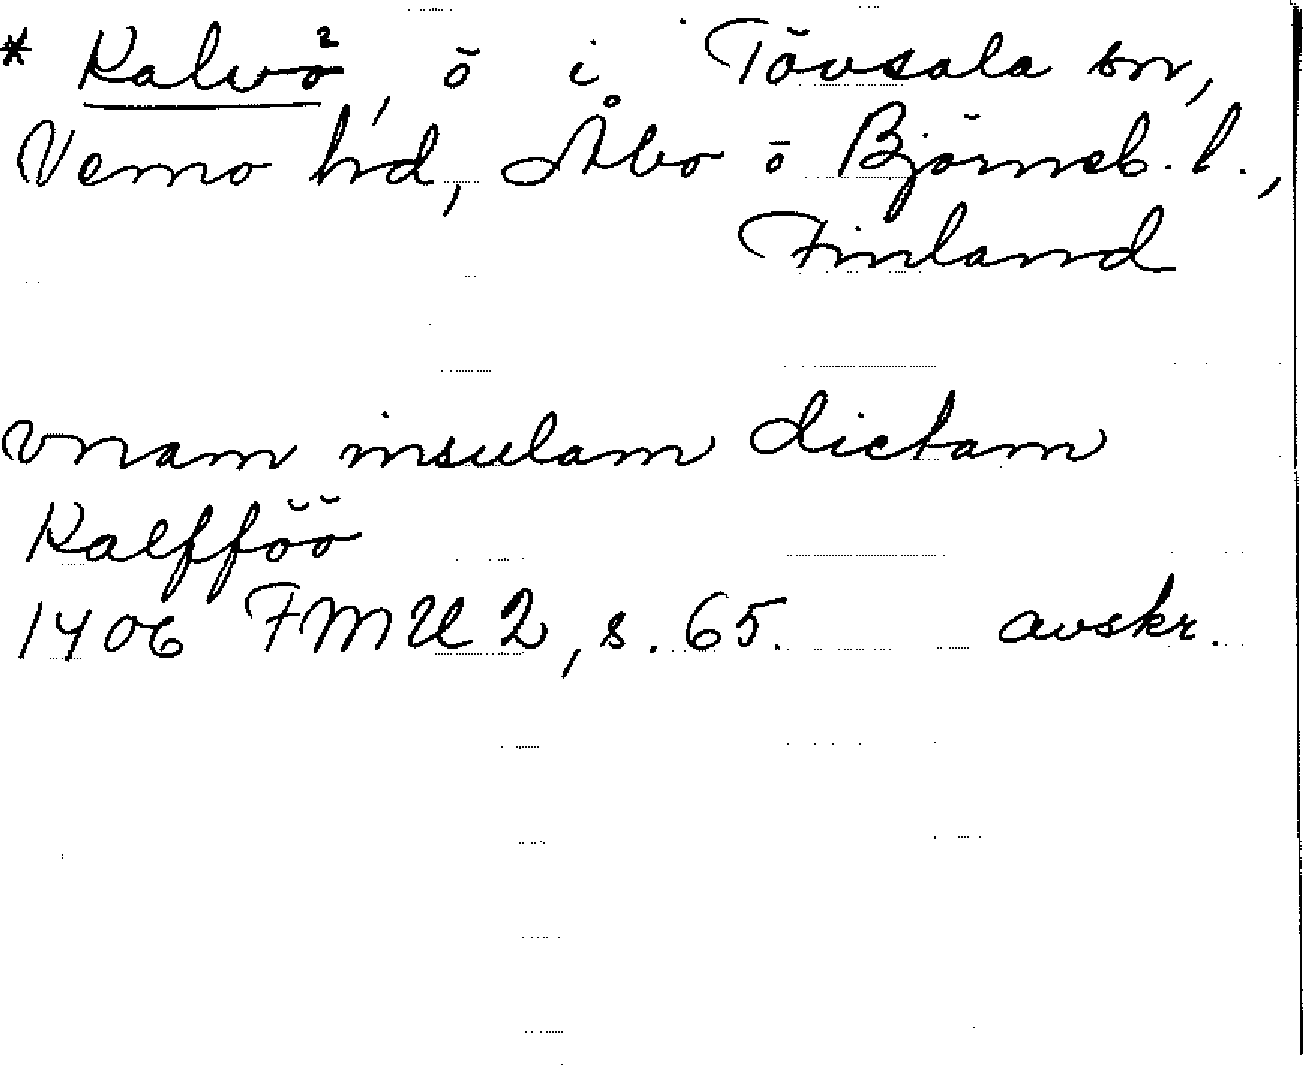 * Kalvö², ö i Tövsala sn,
Vemo hd, Åbo o Björneb. l.,
Finland
vnam insulam dictam
Kalfföö
1406 FMU 2, s. 65. avskr.